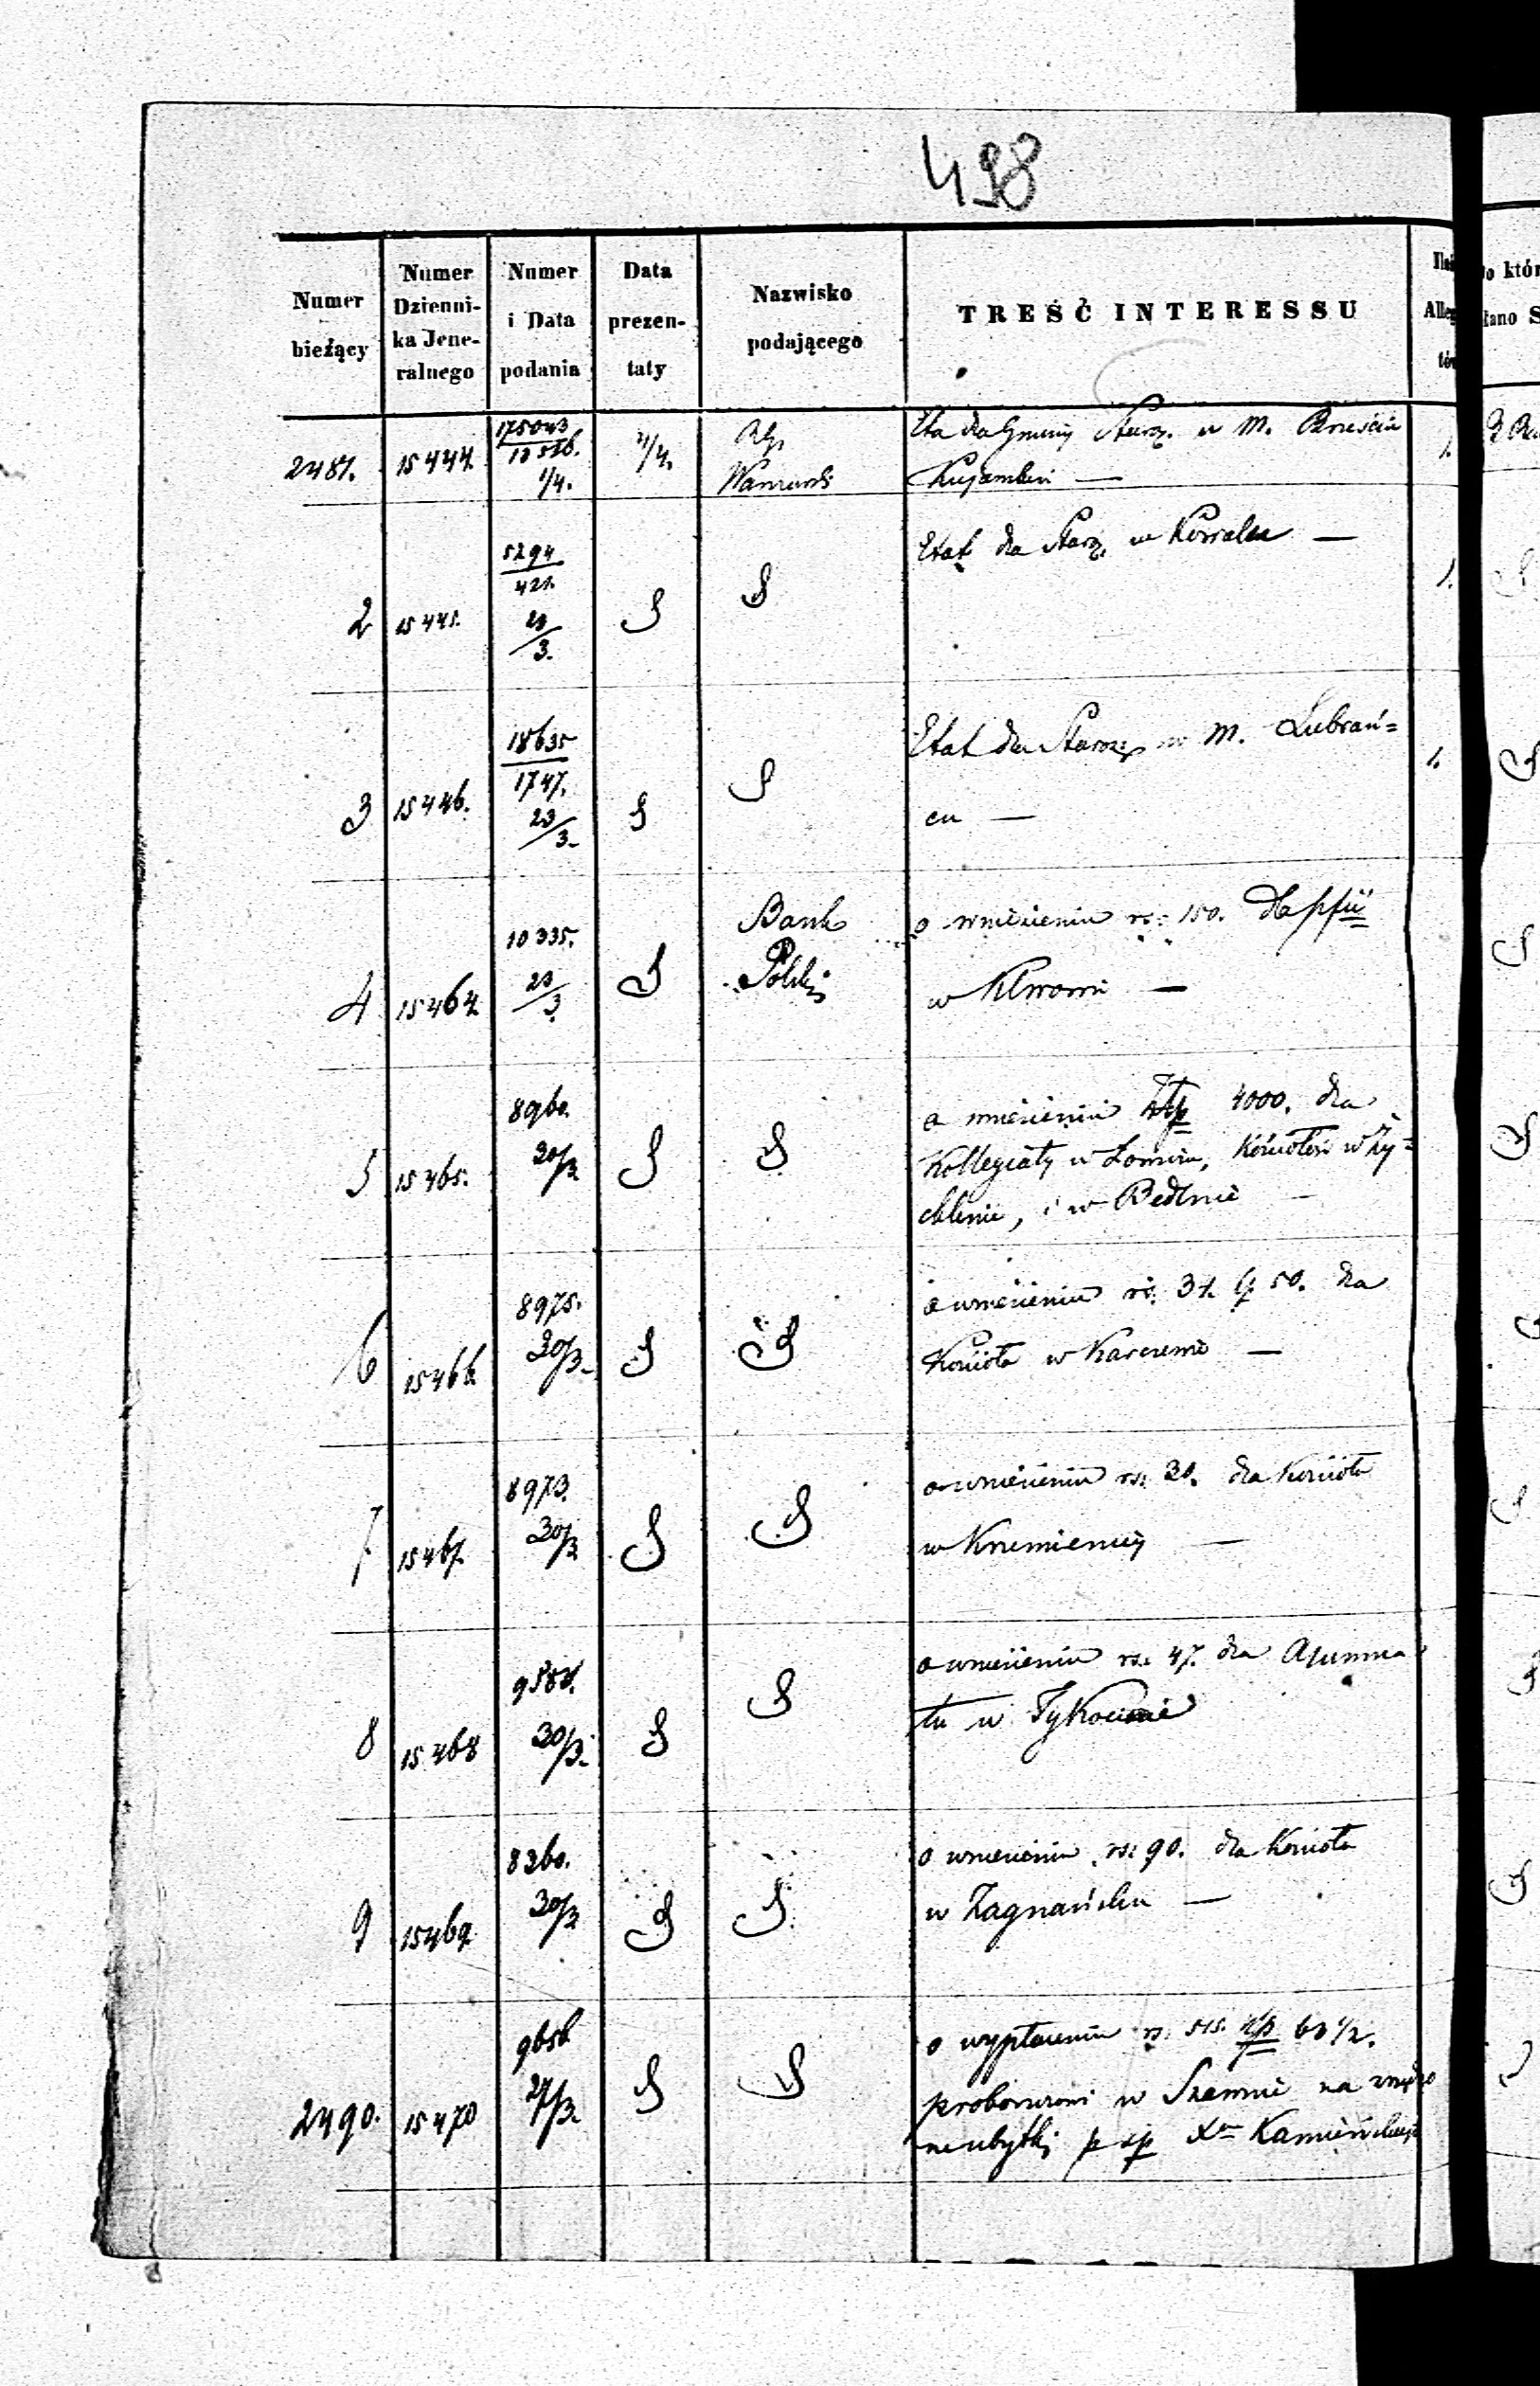 498
Numer bieżący
Numer Dzienni- ka Jene- ralnego
Numer i Data podania
Data prezen- taty
Nazwisko podającego
TREŚĆ INTERESSU
2481. 15444
1/4.
Etat dla Gminy Starz. w M. Brześciu
Kujawskim —
2 15445.
5294
421.
23/3.
Etat dla Starz. w Kowalu —
1.
3 15446.
18635
1747.
23/3.
Etat dla Starsz. w M. Lubrań=
cu —
1.
4 15464
10335.
23/3.
Bank
Polski
o wniesieniu rs: 150.
w Klwowi —
5 15465.
8960.
30/3
o wniesieniu Złp 4000. dla
Kollegiaty w Łowiczu, Kościołów w Ży=
chlinie, i w Bedlnie —
6 15466
8975.
30/3.
o wniesieniu rs. 31. k 50. dla
Kościoła w Karczewie —
7 15467.
8973.
30/3
o wniesieniu rs: 30. dla Kościoła
w Krzemienicy —
8 15468
30/3.
o wniesieniu rs: 47. dla Alumna
tu w Tykocinie
9 15469
8360.
30/3
o wniesieniu rs: 90. dla Kościoła
w Zagnańsku —
2490. 15470
9656
27/3.
o wypłaceniu rs. 515. k/p 63 1/2.
proboszczowi w na
p Xa Kamieńskiego